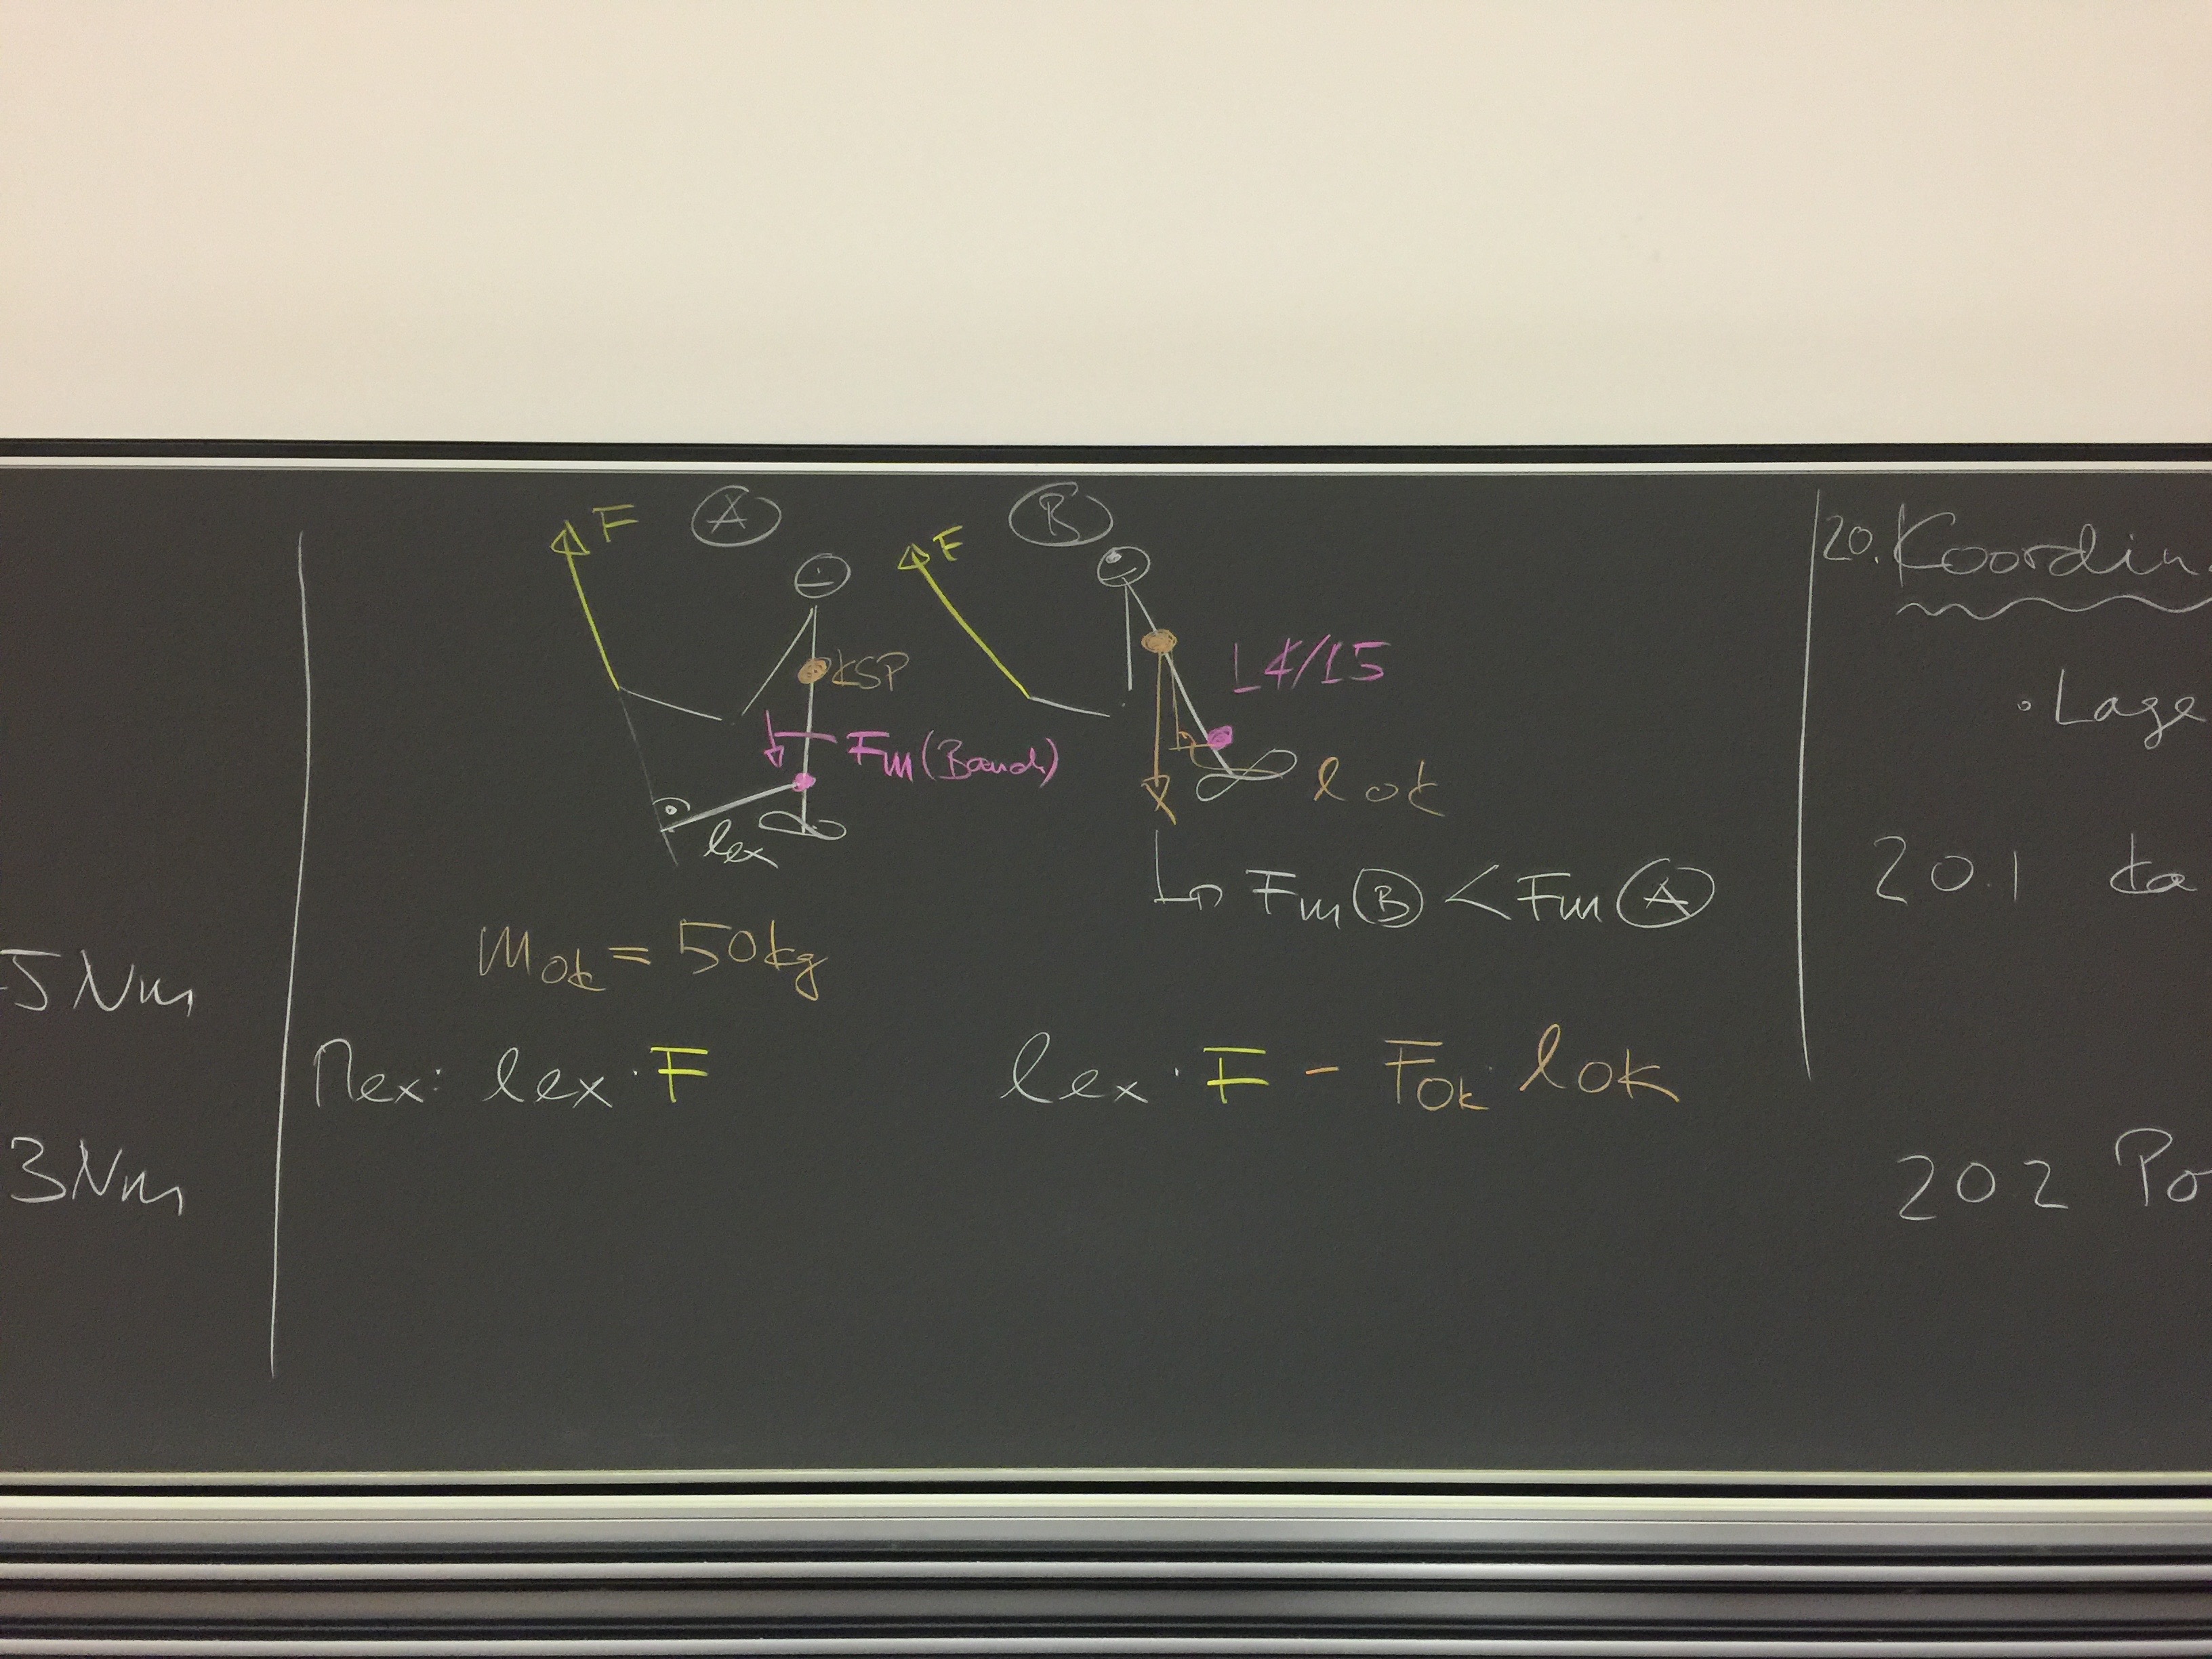 5 Nm
3 Nm
F
A
KSP
Fm (Bauch)
lex
F
B
L4/L5
lok
↳ Fm B < Fm A
mok = 50kg
Mex: lex · F
lex · F - Fok · lok
20. Koordin
· Lage
20.1 ka
20.2 Po